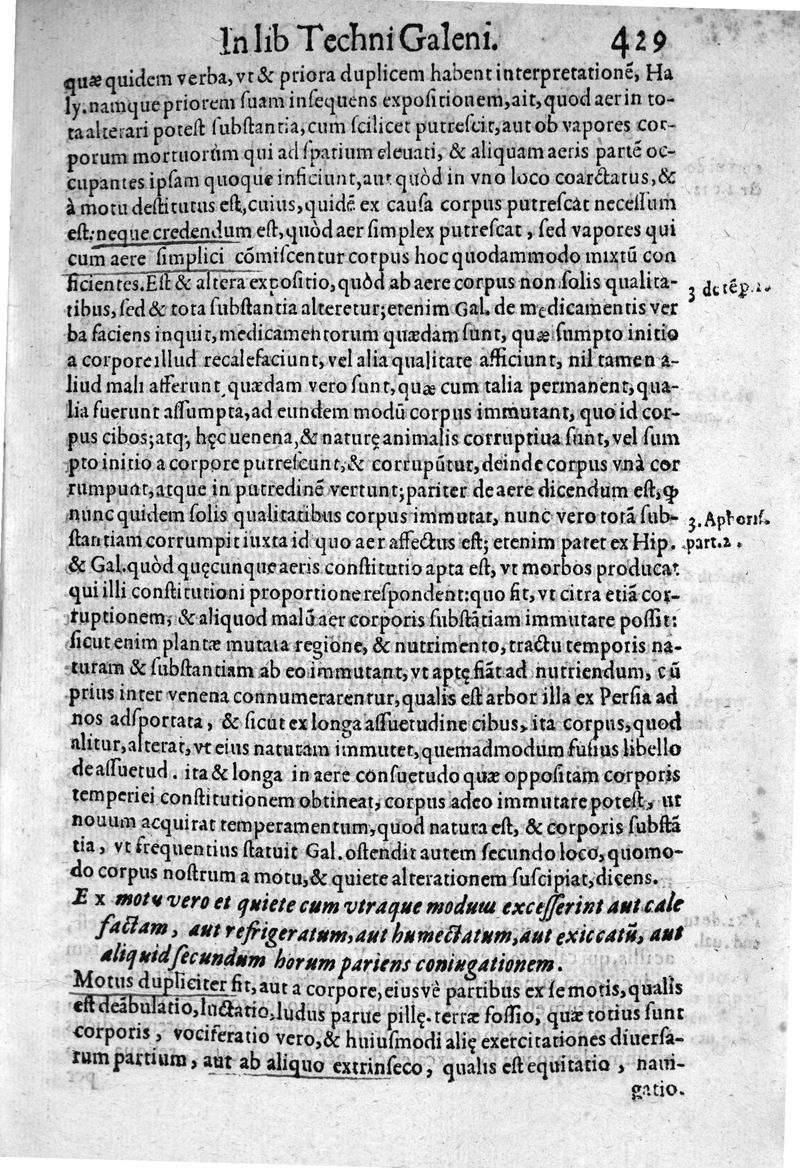 In lib Techni Galeni. 429
quæ quidem verba, vt & priora duplicem habent interpretationē, Ha
ly. namque priorem suam insequens expositionem, ait, quod aer in to-
ta alterari potest substantia, cum scilicet putrescit, aut ob vapores cor-
porum mortuorùm qui ad spatium eleuati, & aliquam aeris partē oc-
cupantes ipsam quoque inficiunt, aut quòd in vno loco coarctatus, &
à motu destitutus est, cuius, quidē ex causa corpus putrescat necessum
est: neque credendum est, quòd aer simplex putrescat, sed vapores qui
cum aere simplici cōmiscentur corpus hoc quodammodo mixtū con
ficientes. Est & altera expositio, quòd ab aere corpus non solis qualita-
tibus, sed & tota substantia alteretur; etenim Gal. de medicamentis ver
ba faciens inquit, medicamentorum quædam sunt, quæ sumpto initio
a corpore illud recalefaciunt, vel alia qualitate afficiunt, nil tamen a-
liud mali afferunt, quædam vero sunt, quæ cum talia permanent, qua-
lia fuerunt assumpta, ad eundem modū corpus immutant, quo id cor-
pus cibos; atq; hęc uenena, & naturę animalis corruptiua sunt, vel sum
pto initio a corpore putrescunt, & corrupūtur, deinde corpus vnà cor
rumpunt, atque in putredinē vertunt; pariter de aere dicendum est, ꝙ
nunc quidem solis qualitatibus corpus immutat, nunc vero totā sub-
stantiam corrumpit iuxta id quo aer affectus est; etenim patet ex Hip.
& Gal. quòd quęcunque aeris constitutio apta est, vt morbos producat
qui illi constitutioni proportione respondent: quo fit, vt citra etiā cor-
ruptionem, & aliquod malū aer corporis substātiam immutare possit:
sicut enim plantæ mutata regione, & nutrimento, tractu temporis na-
turam & substantiam ab eo immutant, vt aptę fiāt ad nutriendum, cū
prius inter venena connumerarentur, qualis est arbor illa ex Persia ad
nos adsportata, & sicut ex longa assuetudine cibus, ita corpus, quod
alitur, alterat, vt eius naturam immutet, quemadmodum fusius libello
de assuetud. ita & longa in aere consuetudo quæ oppositam corporis
temperiei constitutionem obtineat, corpus adeo immutare potest, ut
nouum acquirat temperamentum, quod natura est, & corporis substā
tia, vt frequentius statuit Gal. ostendit autem secundo loco, quomo-
do corpus nostrum a motu, & quiete alterationem suscipiat, dicens.
Ex motu vero et quiete cum vtraque modum excesserint aut cale
factam, aut refrigeratum, aut humectatum, aut exiccatū, aut
aliquid secundum horum pariens coniugationem.
Motus dupliciter fit, aut a corpore, eiusvè partibus ex se motis, qualis
est deābulatio, luctatio, ludus parue pillę. terræ fossio, quæ totius sunt
corporis, vociferatio vero, & huiusmodi alię exercitationes diuersa-
rum partium, aut ab aliquo extrinseco, qualis est equitatio, naui-
gatio.
3 de tēp.
3. Aphoris.
part. 2.